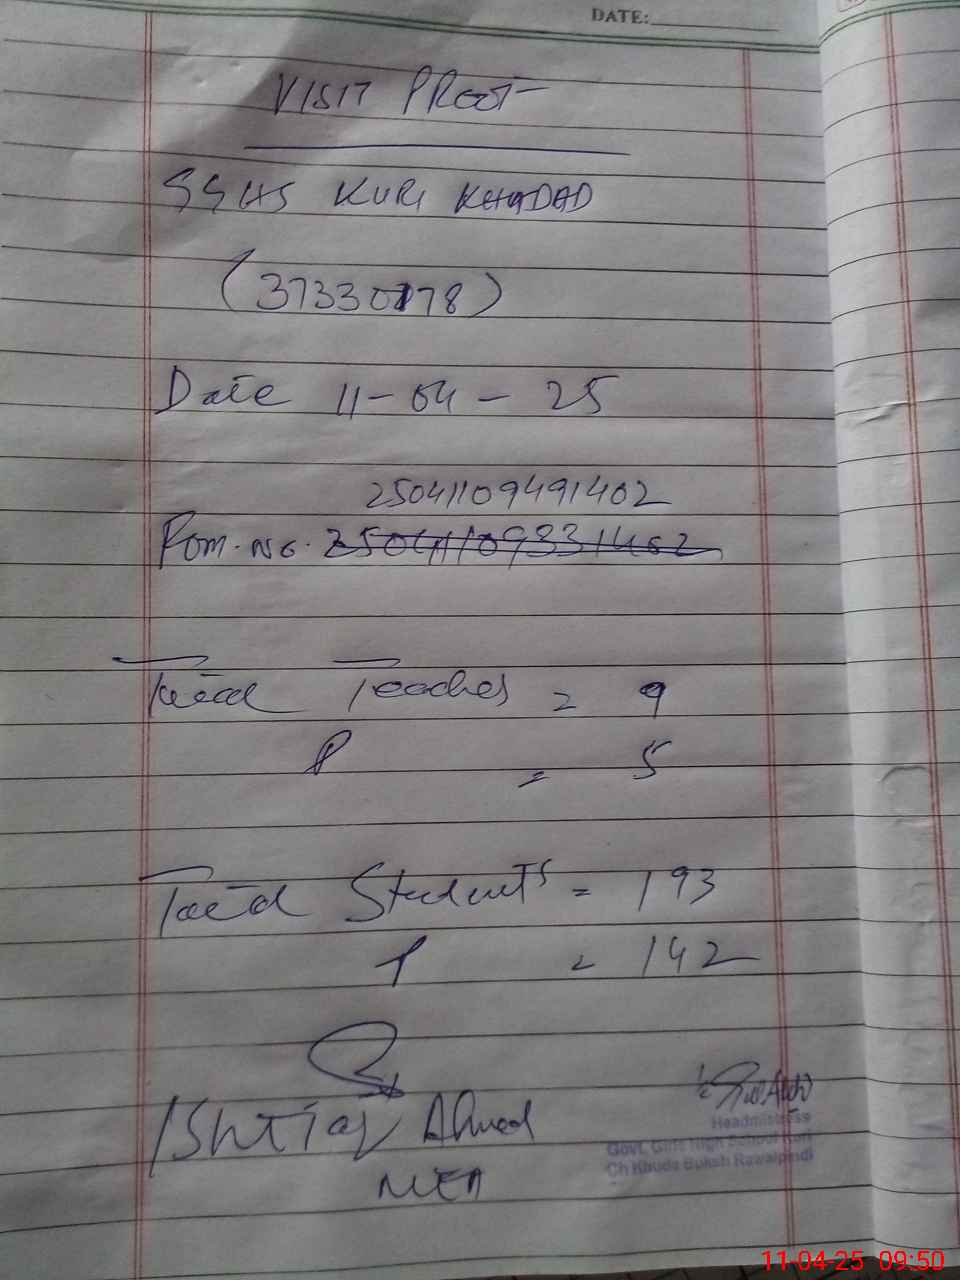 DATE:
VISIT PROOF
GGHS KURI KHUDAD
(37330178)
Date 11-04-25
25041109491402
Rom. No. 25041109331402
Total Teaches = 9
P = 5
Total Students = 193
P = 142
Ishtiaq Ahmed
MEA
Headmistress
Govt. Girls High School Kuri
Ch Khuda Buksh Rawalpindi
11-04-25 09:50